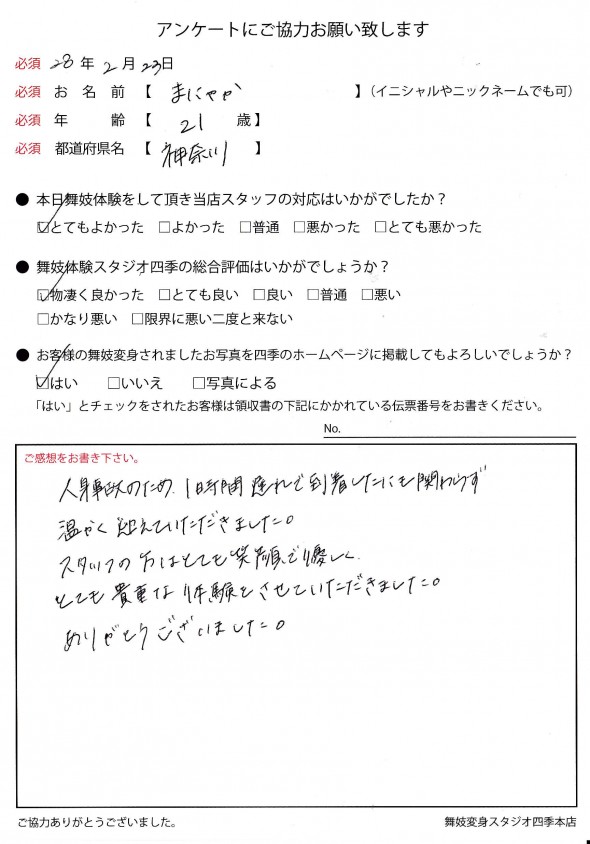 アンケートにご協力お願い致します
必須 28年2月23日
必須 お名前【 まにゃか 】（イニシャルやニックネームでも可）
必須 年齢【 21 歳】
必須 都道府県名【 神奈川 】
● 本日舞妓体験をして頂き当店スタッフの対応はいかがでしたか？
☑とてもよかった □よかった □普通 □悪かった □とても悪かった
● 舞妓体験スタジオ四季の総合評価はいかがでしょうか？
☑物凄く良かった □とても良い □良い □普通 □悪い
□かなり悪い □限界に悪い二度と来ない
● お客様の舞妓変身されましたお写真を四季のホームページに掲載してもよろしいでしょうか？
☑はい □いいえ □写真による
「はい」とチェックをされたお客様は領収書の下記にかかれている伝票番号をお書きください。
No.
ご感想をお書き下さい。
人身事故のため、1時間遅れで到着したにも関わらず
温かく迎えていただきました。
スタッフの方はとても笑顔で優しく、
とても貴重な体験をさせていただきました。
ありがとうございました。
ご協力ありがとうございました。
舞妓変身スタジオ四季本店